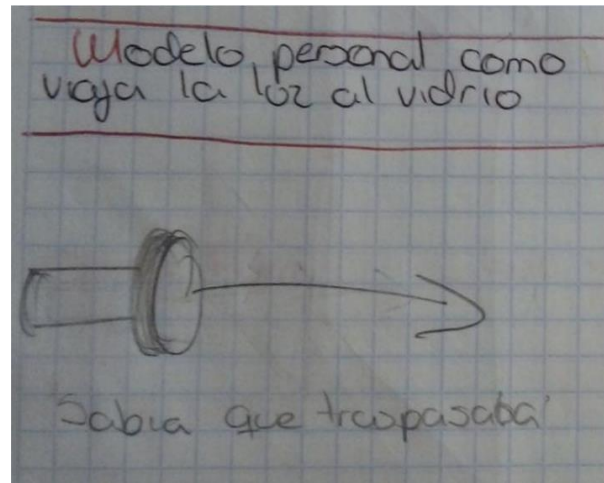 Modelo personal como
viaja la loz al vidrio
Sabia que traspasaba